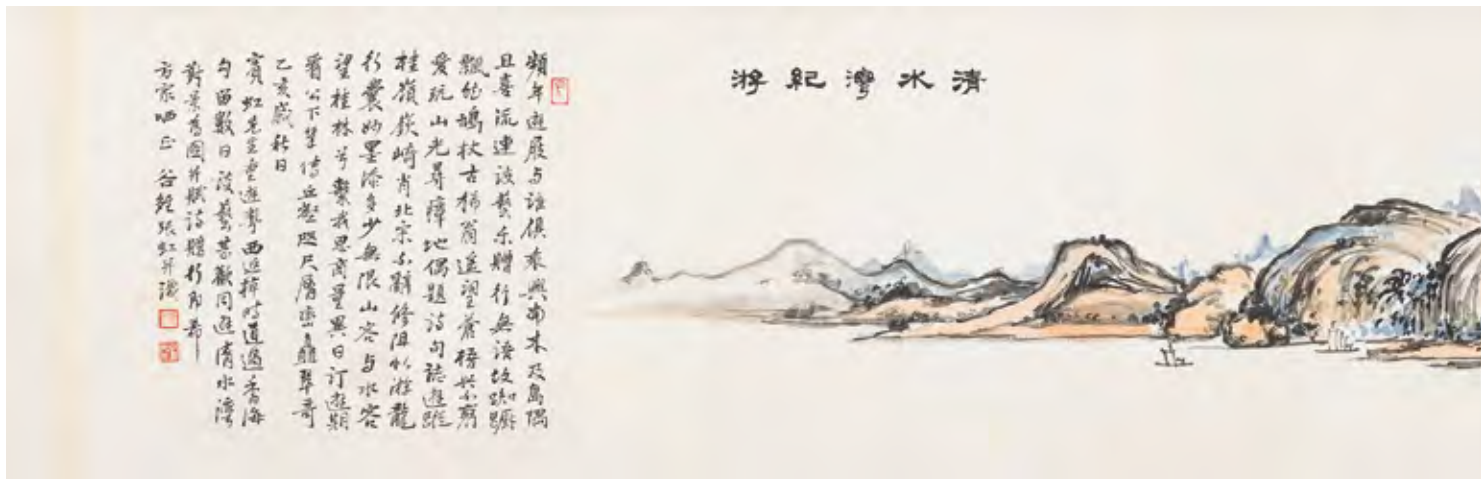 清水灣紀游
頻年遊屐与誰俱乘興南來及島隅
且喜流連談藝樂贈行無語故踟躕
飄然鳩杖古稀翁遥望蒼梧興不窮
愛玩山光尋障地偶題詩句誌遊蹤
桂嶺嶔崎肖北宗不辭修阻似游龍
行囊妙墨添多少無限山容与水容
望桂林兮繫我思商量異日訂遊期
看公下筆傳丘壑咫尺層巒矗翠奇
乙亥歲秋日
賓虹先生重遊粤西返棹時道過香海
勾留數日談藝甚歡同遊清水灣
對景為圖并賦詩贈行即希
方家哂正 谷雛張虹并識